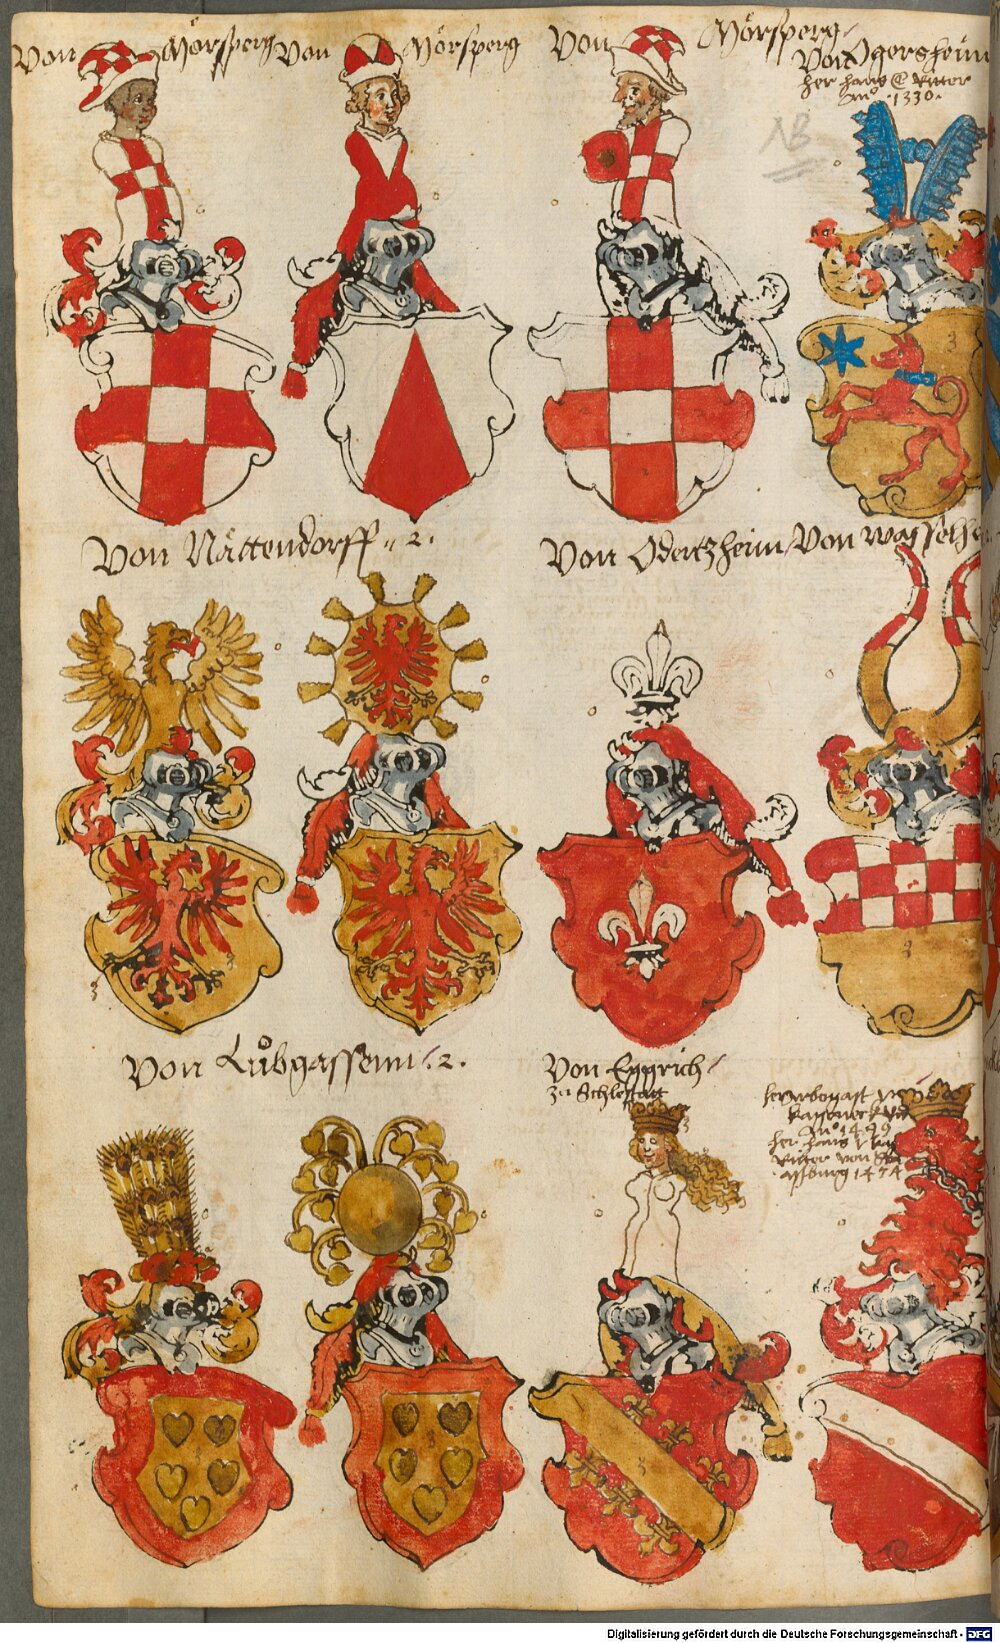 Von Mörsperg
Von Mörsperg
Von Mörsperg
Von Ogersheim
her hans E Ritter
Ano · 1330 ·
NB
Von Nättendorff · 2 ·
Von Odertzheim
Von
Von Lůbgassenn · 2 ·
Von Eggrich
zu Schletstatt
her arbogast
Ano 1499
her hans
Ritter von
assburg 1474
Digitalisierung gefördert durch die Deutsche Forschungsgemeinschaft - DFG